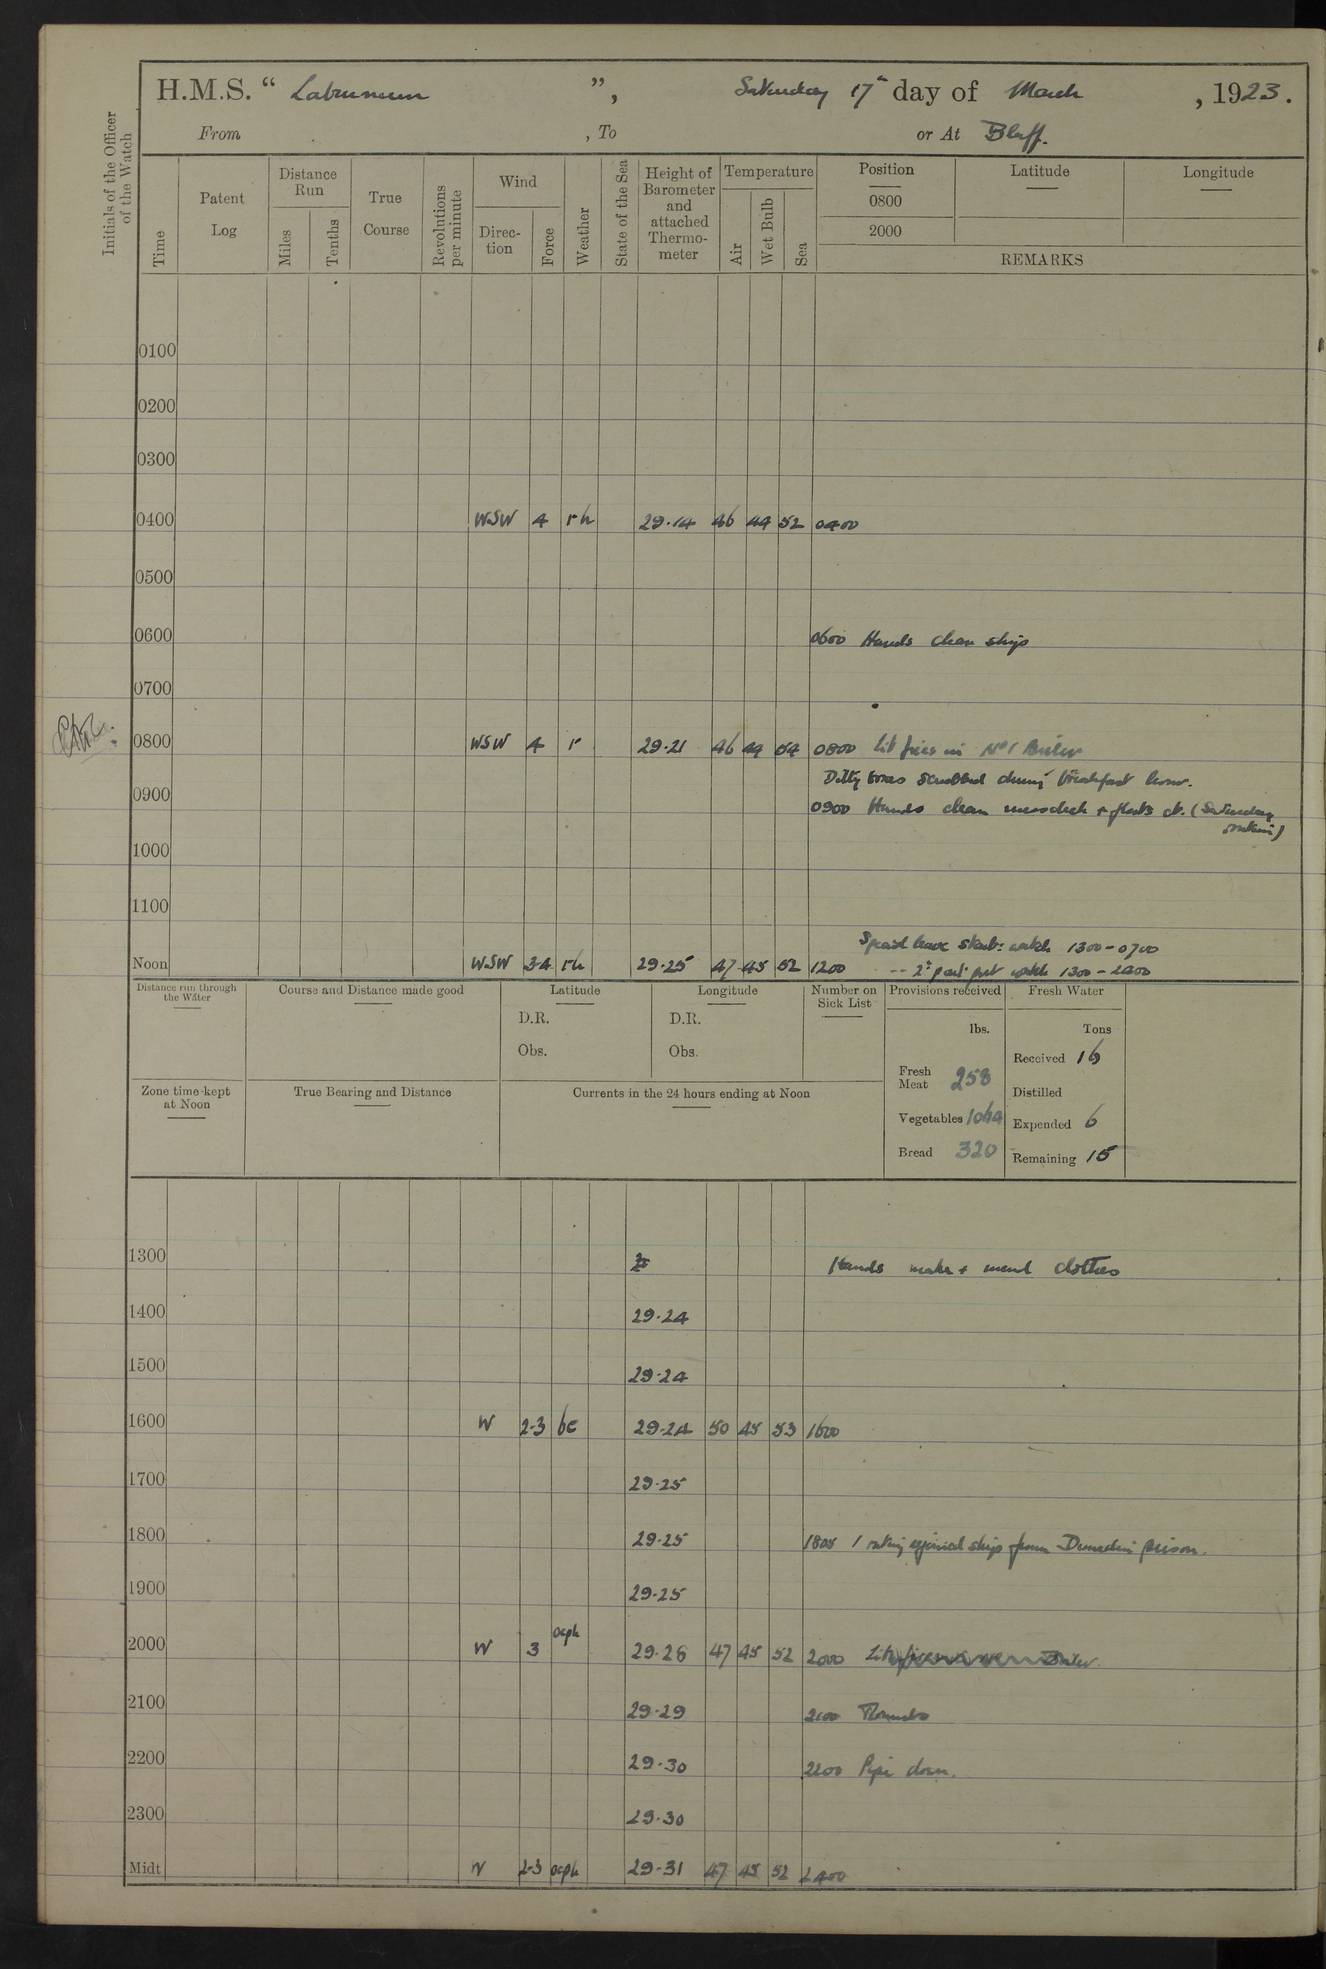 H.M.S. " Labrunum ", Saturday 17th day of March, 1923.
From , To or At Bluff.
Initials of the Officer of the Watch
Time Patent Log Distance Run Miles Tenths True Course Revolutions per minute Wind Direc-tion Force Weather State of the Sea Height of Barometer and attached Thermo-meter Temperature Air Wet Bulb Sea Position 0800 2000 Latitude Longitude
REMARKS
0100
0200
0300
0400 WSW 4 rh 29.14 46 44 52 0400
0500
0600 0600 Hands clean ship
0700
0800 WSW 4 r 29.21 46 44 54 0800 Lit fires in No 1 Boiler
Ditty boxes scrubbed during breakfast hour.
0900 0900 Hands clean messdeck + flats &c. (Saturday routine)
1000
1100
Special leave Starb: watch 1300-0700
Noon WSW 3-4 rh 29.25 47 45 52 1200 -- 2nd part port watch 1300-2200
Distance run through the Water Course and Distance made good Latitude Longitude Number on Sick List Provisions received Fresh Water
D.R. D.R. lbs. Tons
Obs. Obs. Received 16
Fresh Meat 258 Distilled
Zone time kept at Noon True Bearing and Distance Currents in the 24 hours ending at Noon
Vegetables 1064 Expended 6
Bread 320 Remaining 15
1300 Hands make + mend clothes
1400 29.24
1500 29.24
1600 W 2-3 bc 29.24 50 45 53 1600
1700 29.25
1800 29.25 1805 1 rating rejoined ship from Dunedin prison.
1900 29.25
2000 W 3 ocph 29.26 47 45 52 2000 Lit fires Boiler.
2100 29.29 2100 Rounds
2200 29.30 2200 Pipe down.
2300 29.30
Midt W 2-3 ocph 29.31 47 45 52 2400